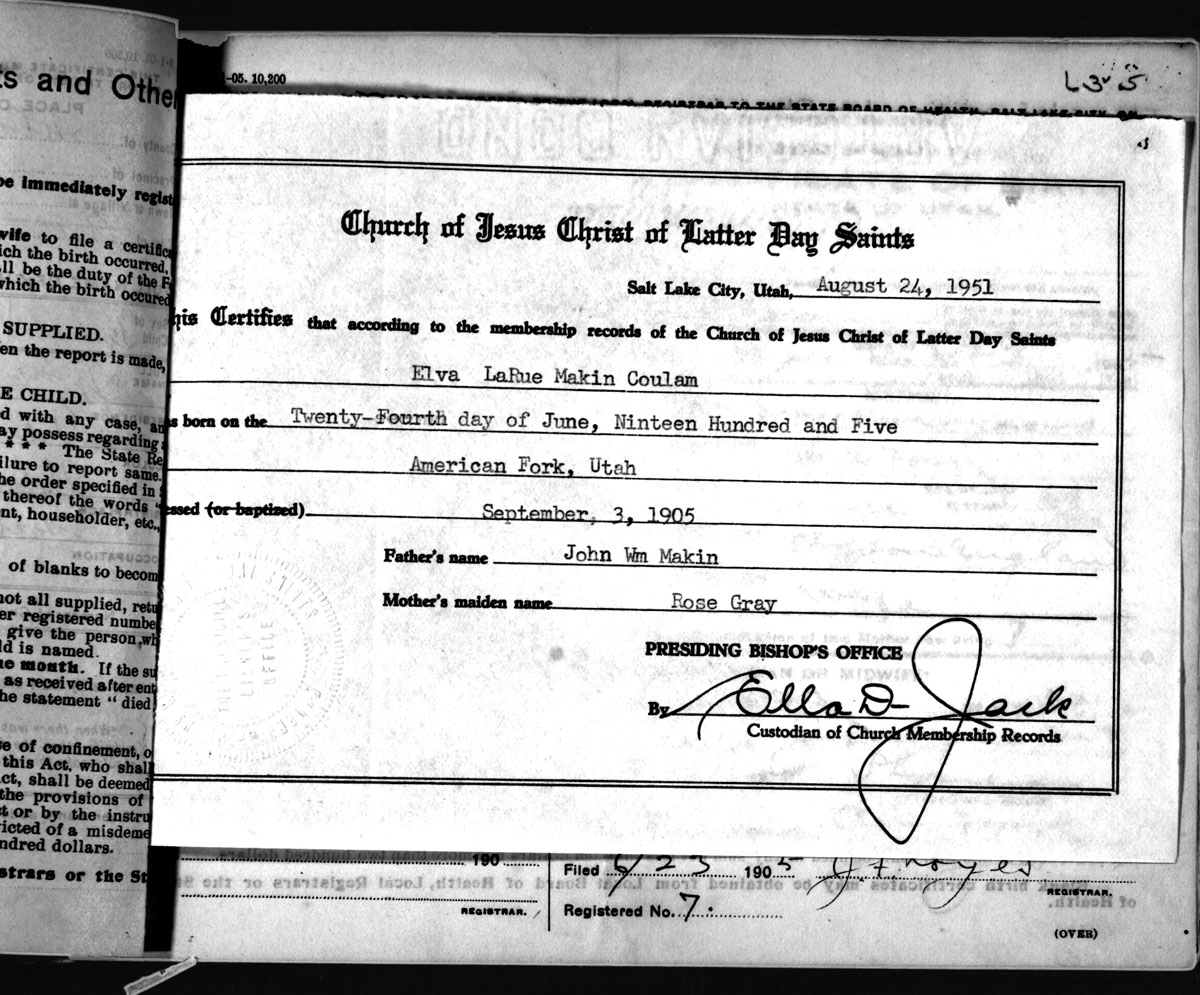 ts and Other
be immediately regist
wife to file a certific
ich the birth occurred,
ll be the duty of the F
which the birth occured
SUPPLIED.
en the report is made,
E CHILD.
d with any case, an
ay possess regarding
* * * The State Re
ilure to report same.
he order specified in
thereof the words "
nt, householder, etc.,
of blanks to becom
not all supplied, retu
er registered numbe
give the person, wh
ld is named.
ne month. If the su
as received after ent
he statement "died
se of confinement, o
this Act, who shall
ct, shall be deemed
the provisions of
t or by the instru
icted of a misdeme
ndred dollars.
strars or the St
-05. 10,200
L 3 5
REGISTRAR TO THE STATE BOARD OF HEALTH, SALT LAKE CITY, ON
Church of Jesus Christ of Latter Day Saints
Salt Lake City, Utah, August 24, 1951
his Certifies that according to the membership records of the Church of Jesus Christ of Latter Day Saints
Elva LaRue Makin Coulam
s born on the Twenty-Fourth day of June, Ninteen Hundred and Five
American Fork, Utah
essed (or baptized) September, 3, 1905
Father's name John Wm Makin
Mother's maiden name Rose Gray
PRESIDING BISHOP'S OFFICE
By Ella D- Jack
Custodian of Church Membership Records
190
REGISTRAR.
Filed 6/23 1905 J. F. Noyes
REGISTRAR.
Registered No. 7.
(OVER)